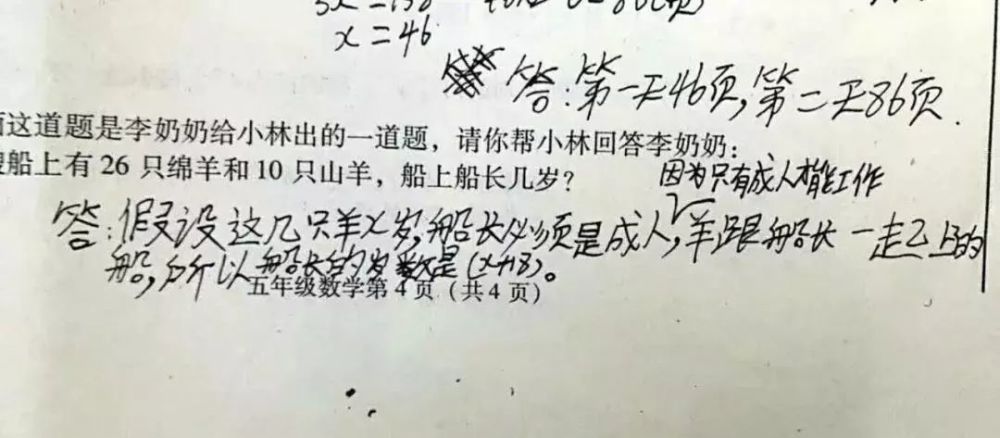 x=46
答:第一天46页,第二天86页.
这道题是李奶奶给小林出的一道题，请你帮小林回答李奶奶：
船上有 26 只绵羊和 10 只山羊，船上船长几岁？
因为只有成人才能工作
答:假设这几只羊x岁,船长必须是成人,羊跟船长一走己上的
船,所以船长的岁数是(x+18)。
五年级数学第 4 页（共 4 页）